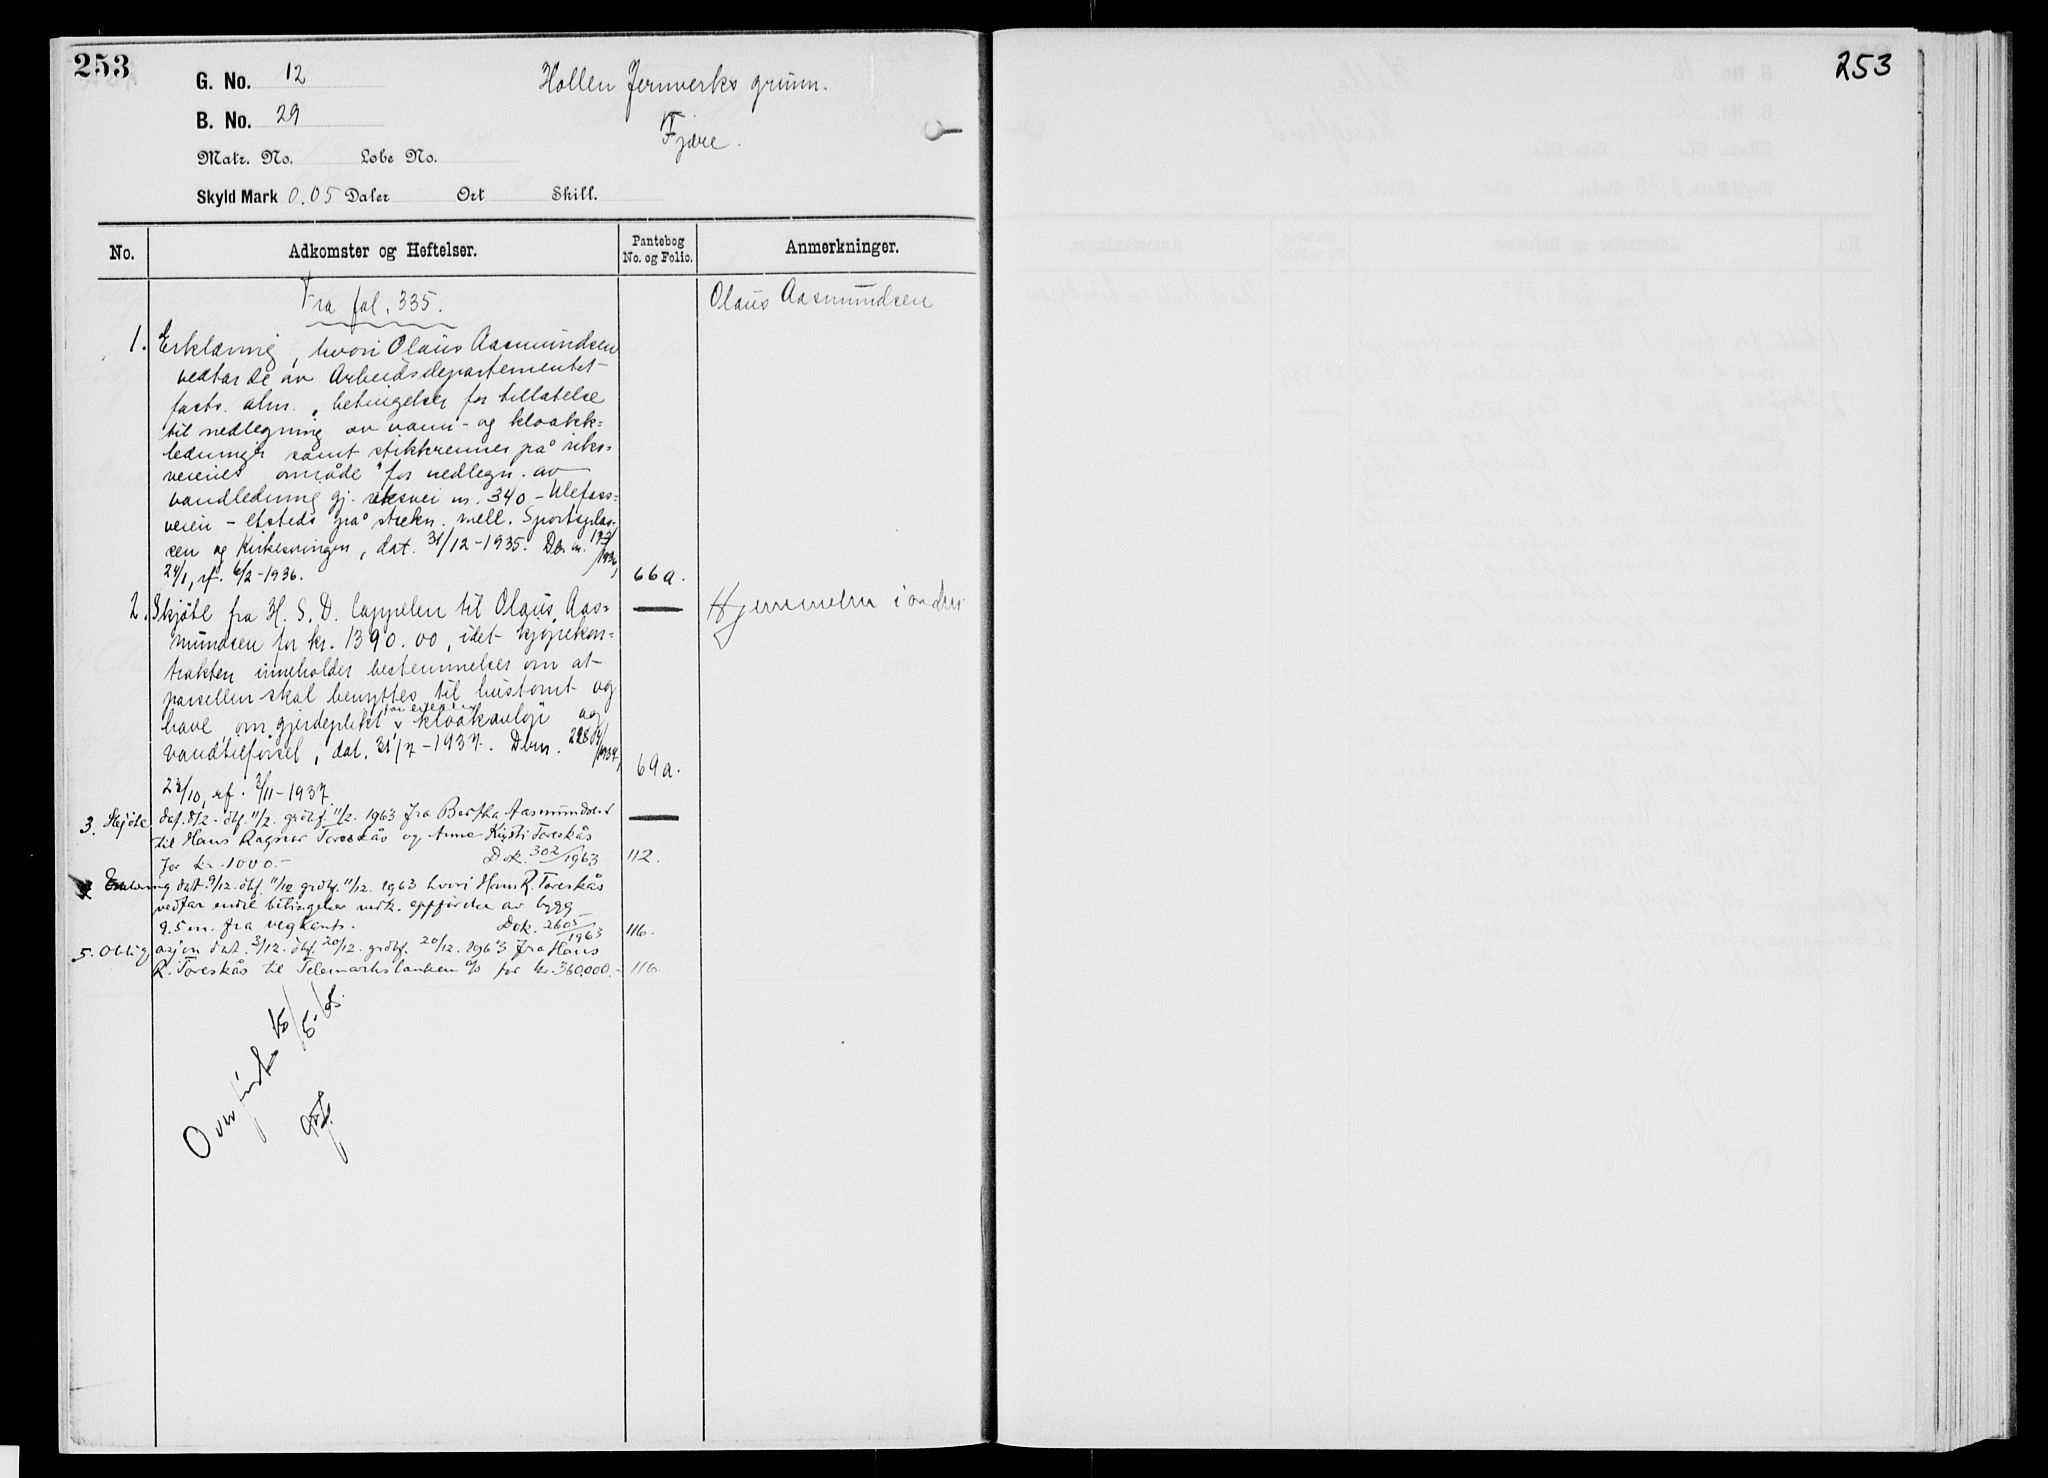 253
G. No. 12
Hollen Jernverks grunn.
B. No. 29
Fjære.
Matr. No. Løbe No.
Skyld Mark 0.05 Daler Ort Skill.
No. Adkomster og Heftelser. Pantebog No. og Folio. Anmerkninger.
Fra fol. 335. Olaus Aasmundsen
1. Erklæring, hvori Olaus Aasmundsen
vedtar de av Arbeidsdepartementet
fasts. alm. „betingelser for tillatelse
til nedlegning av vann- og kloakk=
ledninger samt stikkrenner på riks=
veienes område" for nedlegn. av
vandledning gj. riksvei nr. 340 - Ulefoss=
veien - etsteds på strekn. mell. Sportsplas=
sen og Kirkesvingen, dat. 31/12-1935. Db. nr. /1936,
24/1, rf. 6/2-1936. 66a.
2. Skjöte fra H. S. D. Cappelen til Olaus Aas= Hjemmelen i orden
mundsen for kr. 1390.00, idet kjøpekon=
trakten inneholder bestemmelser om at
parsellen skal benyttes til hustomt og
have, om gjerdeplikt, kloakanlegg og
vandtilførsel, dat. 31/7-1937. Dbnr. /1937,
23/10, rf. 3/11-1937. 69a.
3. Skjöte dat. 11/2. grbf. 11/2. 1963 fra Bertha Aasmundsen
til Hans Ragnar Toreskås og Anne Kirsti Toreskås
for kr. 1000.- Dok. 302/1963 112.
4 Erklæring dat. 9/12. dbf. 11/12 grbf. 11/12. 1963 hvori Hans R. Toreskås
vedtar endel betingelser vedk. oppförelse av bygg
9.5 m. fra vegkant. Dok. 2605/1963 116.
5. Obligasjon dat. 3/12. dbf. 20/12. grbf. 20/12. 1963 fra Hans
R. Toreskås til Telemarksbanken A/S for kr. 360.000.- 116.
Overfört 15/5.
253